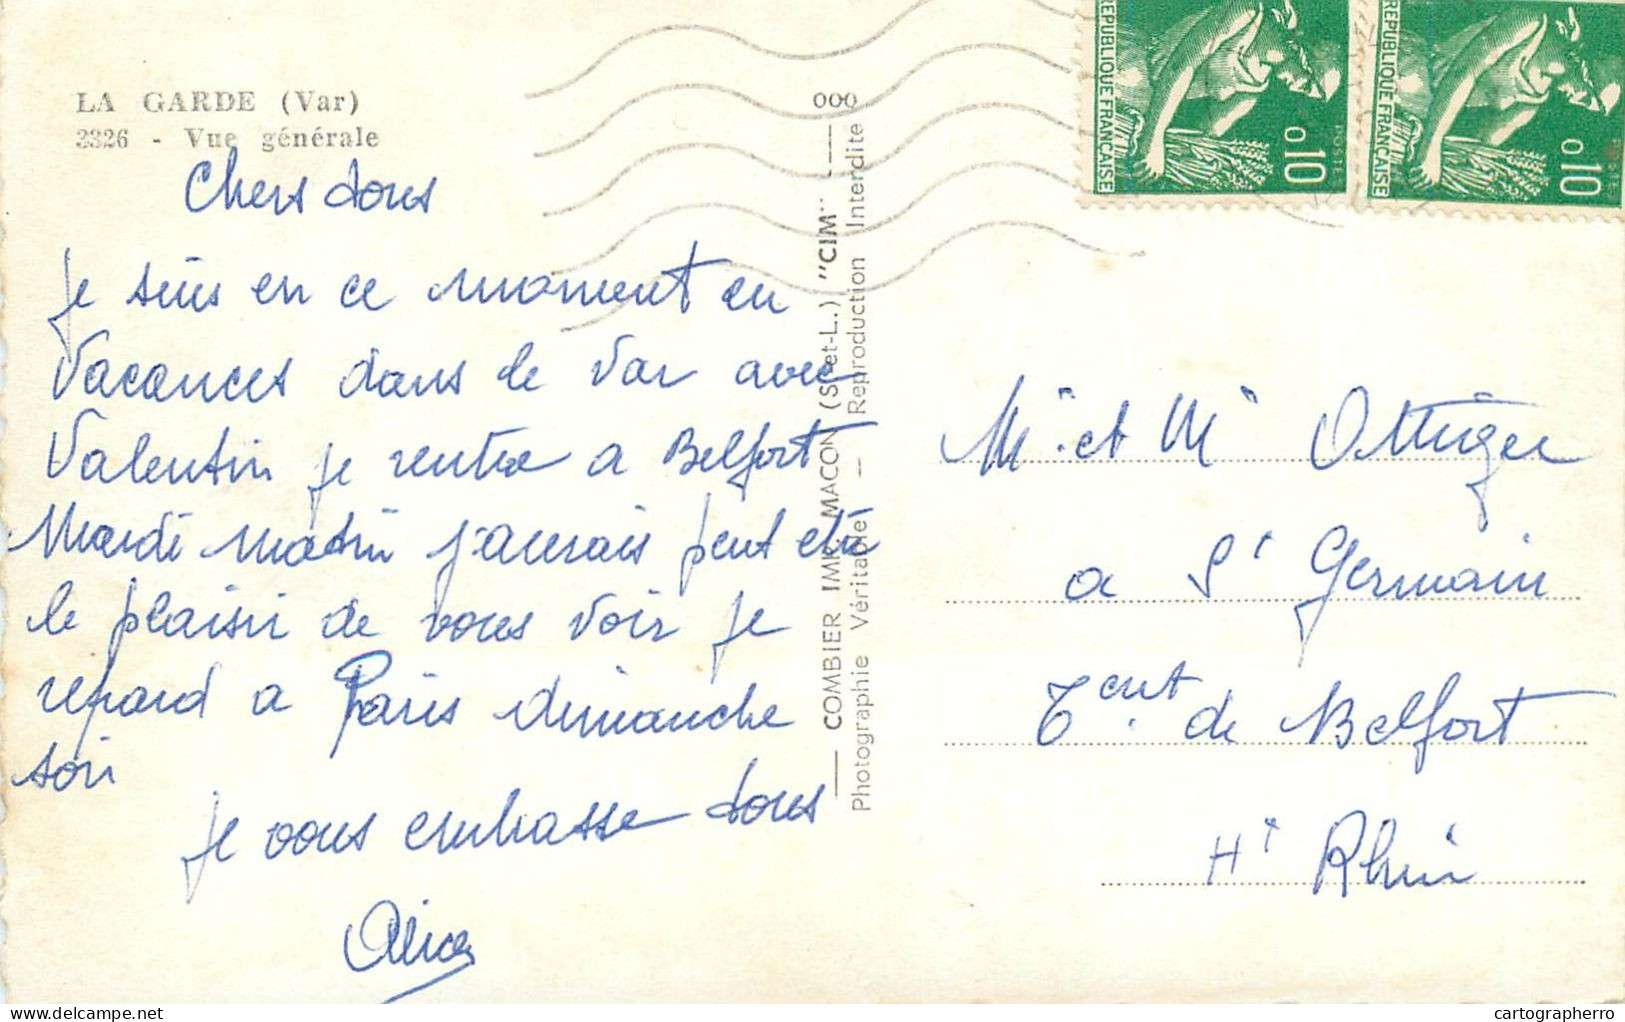 LA GARDE (Var)
3326 - Vue générale
Chers tous
Je suis en ce moment en
Vacances dans le Var avec
Valentin je rentre a Belfort
Mardi matin j'aurais peut etre
le plaisir de vous voir je
repard a Paris dimanche
soir
je vous embrasse tous
Alice
COMBIER IMP. MACON (S.-et-L.) "CIM"
Photographie Véritable - Reproduction Interdite
000
REPUBLIQUE FRANÇAISE
0,10
REPUBLIQUE FRANÇAISE
0,10
Mr et Mr Ottiger
a St Germain
Tent. de Belfort
Ht Rhin
cartographerro